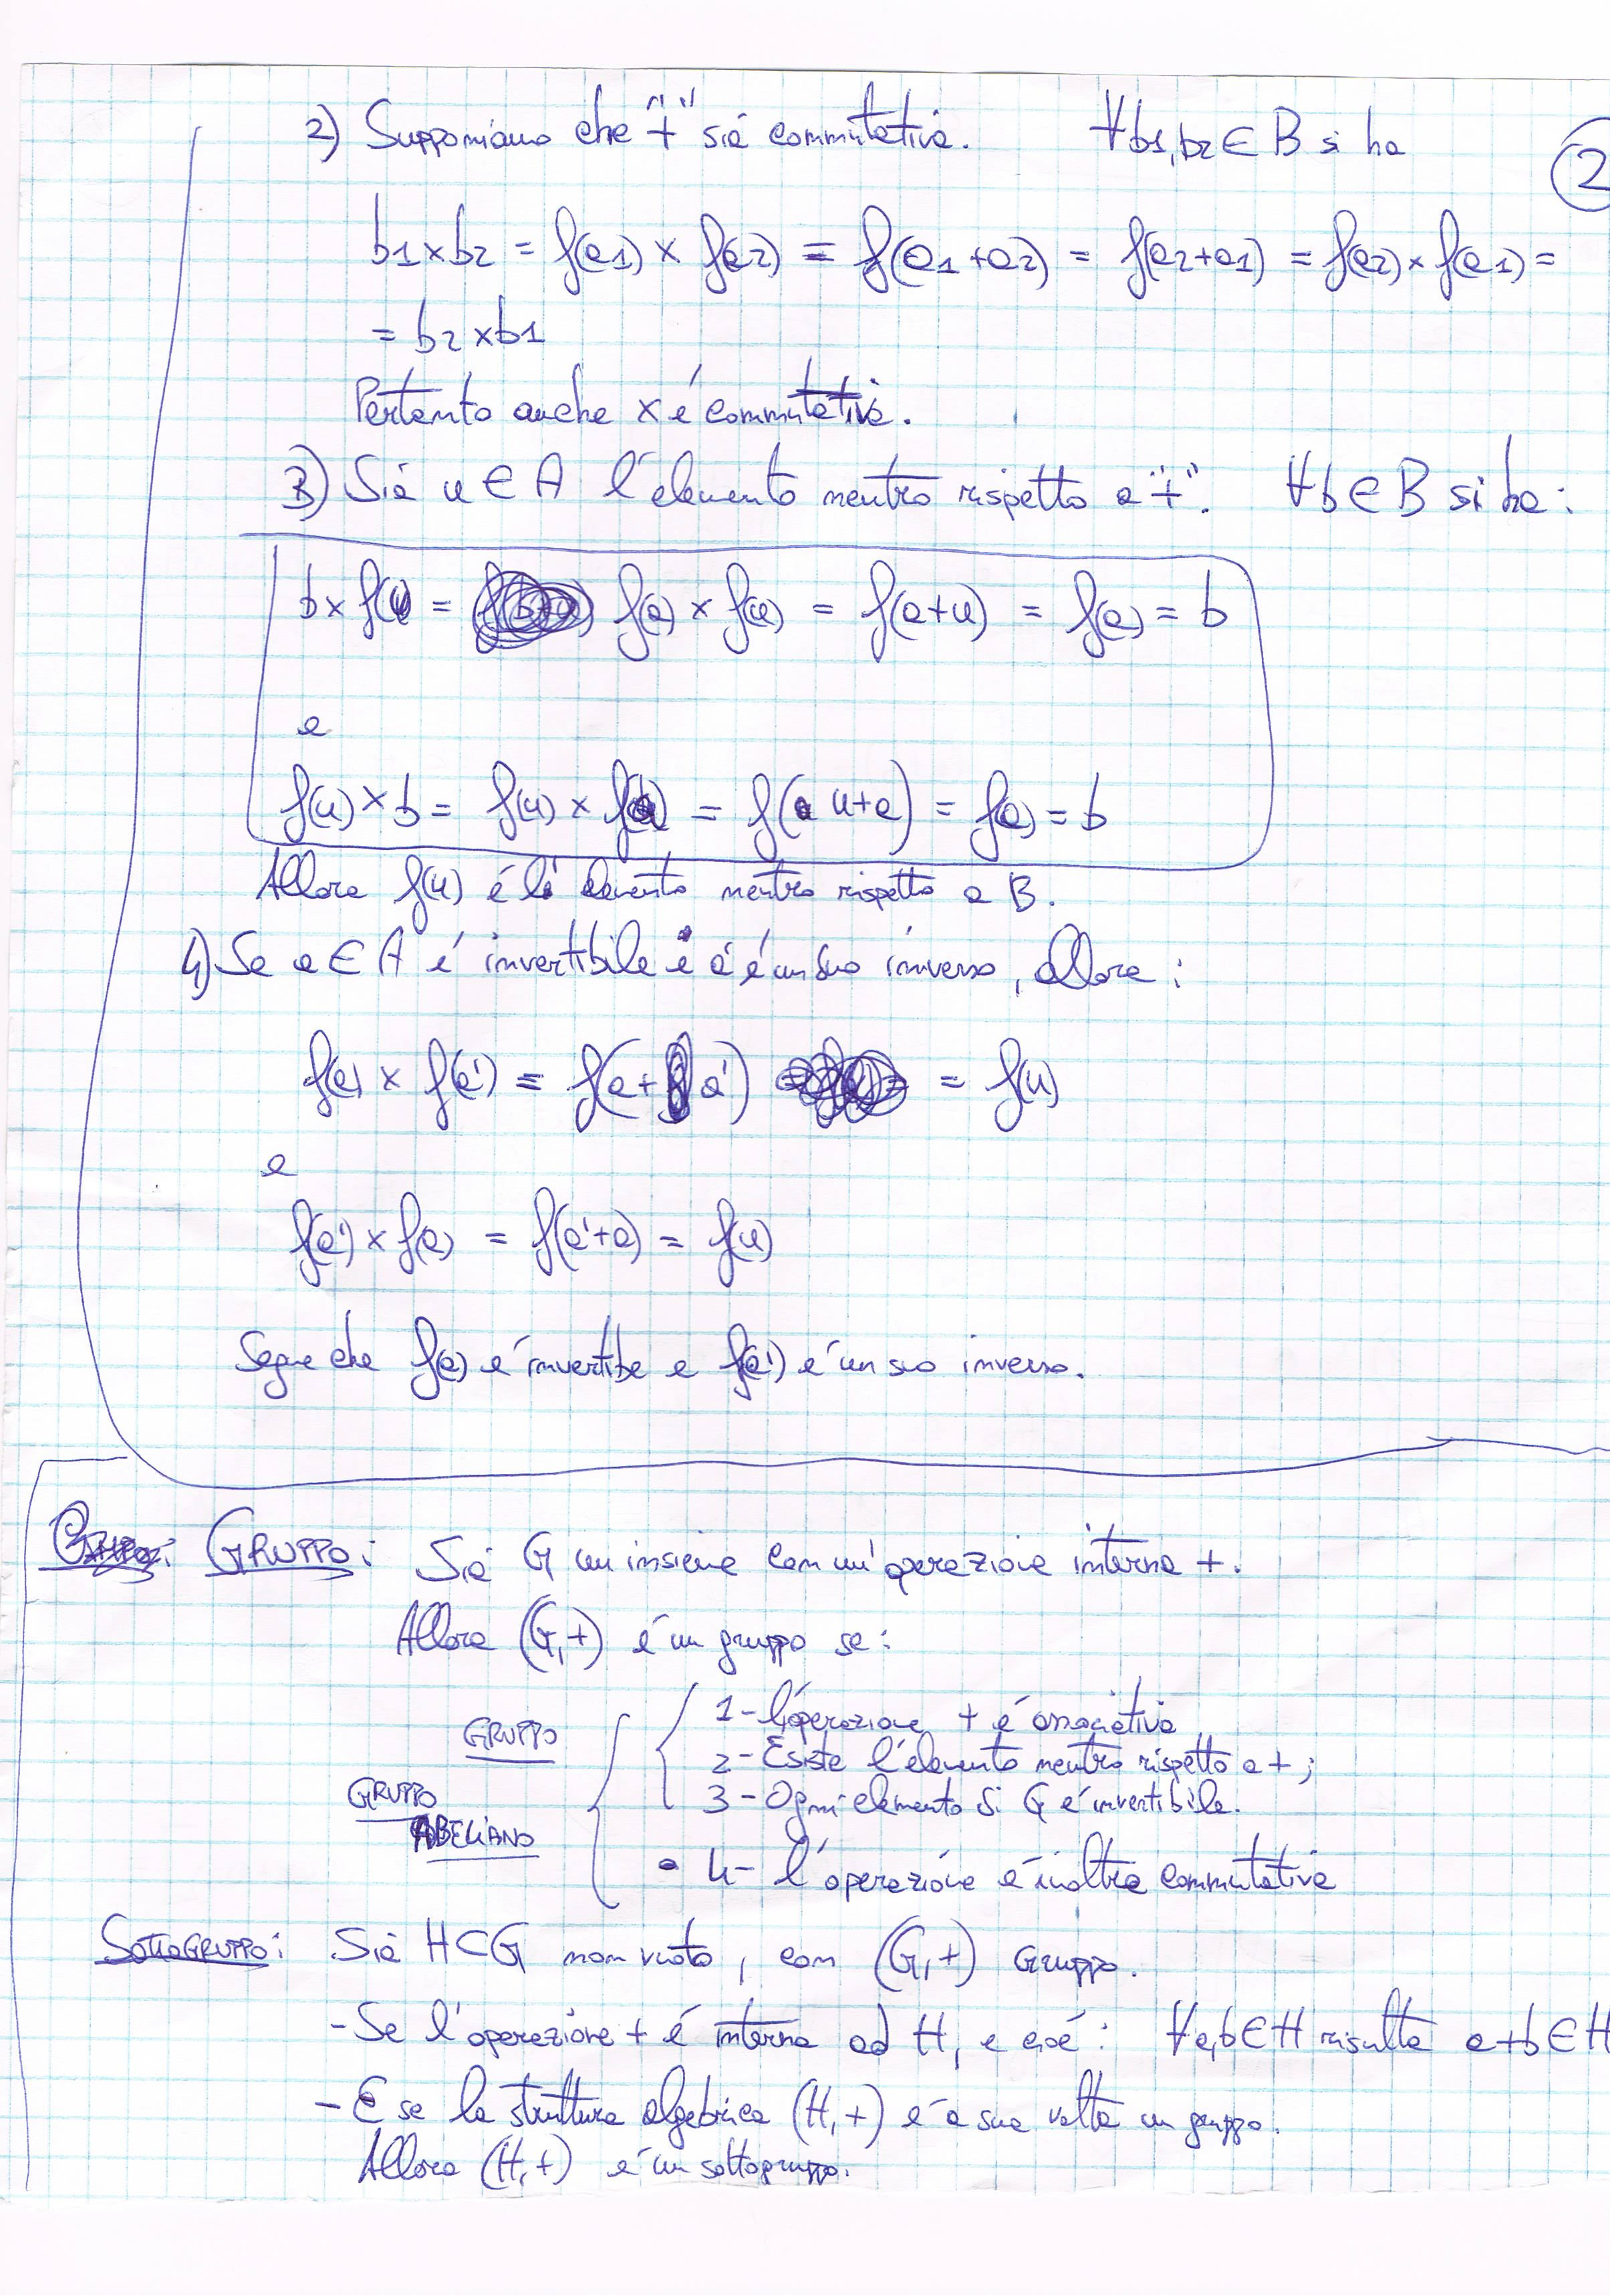 2) Supponiamo che "+" sia commutativa. ∀b1,b2 ∈ B si ha
2
b1×b2 = f(a1) × f(a2) = f(a1+a2) = f(a2+a1) = f(a2) × f(a1) =
= b2×b1
Pertanto anche × é commutativa.
3) Sia u ∈ A l'elemento neutro rispetto a "+". ∀b ∈ B si ha:
b × f(u) = f(a) × f(u) = f(a+u) = f(a) = b
e
f(u) × b = f(u) × f(a) = f(u+a) = f(a) = b
Allora f(u) é l' elemento neutro rispetto a B.
4) Se a ∈ A é invertibile e a' é un suo inverso, allora:
f(a) × f(a') = f(a+a') = f(u)
e
f(a') × f(a) = f(a'+a) = f(u)
Segue che f(a) é invertibe e f(a') é un suo inverso.
GRUPPO: Sia G un insieme con un'operazione interna +.
Allora (G,+) é un gruppo se:
1- L'operazione + é associativa
GRUPPO
2- Esiste l'elemento neutro rispetto a +;
GRUPPO
3- Ogni elemento di G é invertibile.
ABELIANO
4- l'operazione é inoltre commutativa
SOTTOGRUPPO: Sia H⊂G non vuoto, con (G,+) Gruppo.
- Se l'operazione + é interna ad H, e cioé: ∀a,b∈H risulta a+b∈H
- E se la struttura algebrica (H,+) é a sua volta un gruppo.
Allora (H,+) é un sottogruppo.